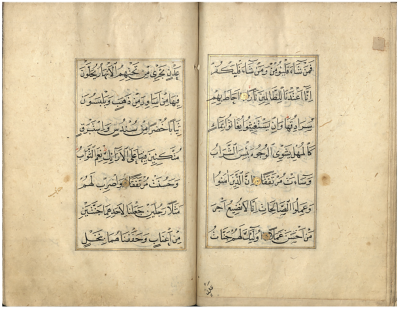 فمن شاء فليؤمن ومن شاء فليكفر
إنا أعتدنا للظالمين نارا أحاط بهم
سرادقها وإن يستغيثوا يغاثوا بماء
كالمهل يشوي الوجوه بئس الشراب
وساءت مرتفقا إن الذين آمنوا
وعملوا الصالحات إنا لا نضيع أجر
من أحسن عملا أولئك لهم جنات
عدن تجري من تحتهم الأنهار يحلون
فيها من أساور من ذهب ويلبسون
ثيابا خضرا من سندس وإستبرق
متكئين فيها على الأرائك نعم الثواب
وحسنت مرتفقا واضرب لهم
مثلا رجلين جعلنا لأحدهما جنتين
من أعناب وحففناهما بنخل